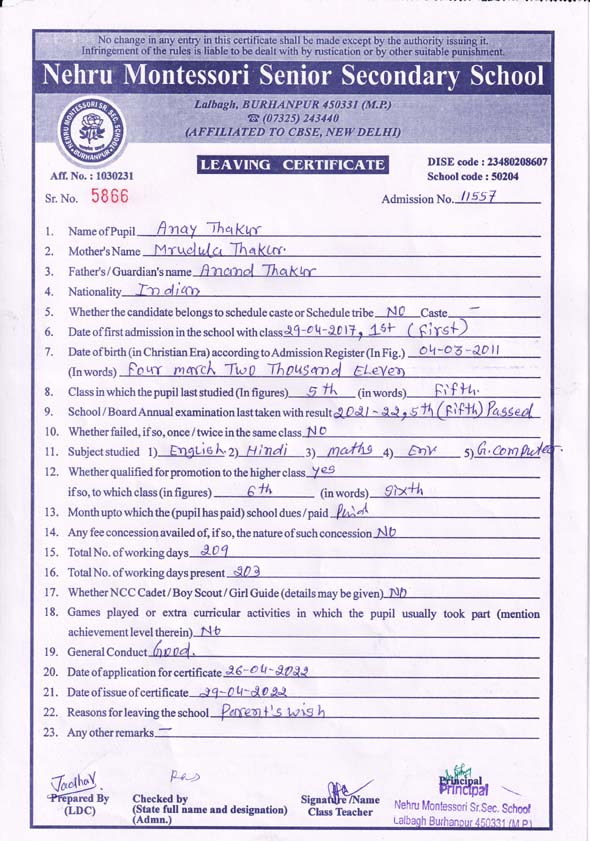 No change in any entry in this certificate shall be made except by the authority issuing it.
Infringement of the rules is liable to be dealt with by rustication or by other suitable punishment.
Nehru Montessori Senior Secondary School
NEHRU MONTESSORI SR. SEC. SCHOOL
BURHANPUR
Lalbagh, BURHANPUR 450331 (M.P.)
☎ (07325) 243440
(AFFILIATED TO CBSE, NEW DELHI)
LEAVING CERTIFICATE
DISE code : 23480208607
Aff. No. : 1030231
School code : 50204
Sr. No. 5866
Admission No. 11557
1. Name of Pupil Anay Thakur
2. Mother's Name Mrudula Thakur.
3. Father's / Guardian's name Anand Thakur
4. Nationality Indian
5. Whether the candidate belongs to schedule caste or Schedule tribe NO Caste —
6. Date of first admission in the school with class 29-04-2017, 1st (First)
7. Date of birth (in Christian Era) according to Admission Register (In Fig.) 04-03-2011
(In words) Four march Two Thousand Eleven
8. Class in which the pupil last studied (In figures) 5th (in words) Fifth.
9. School / Board Annual examination last taken with result 2021-22, 5th (Fifth) Passed
10. Whether failed, if so, once / twice in the same class NO
11. Subject studied 1) English 2) Hindi 3) maths 4) Env 5) G. computer.
12. Whether qualified for promotion to the higher class yes
if so, to which class (in figures) 6th (in words) sixth
13. Month upto which the (pupil has paid) school dues / paid Paid
14. Any fee concession availed of, if so, the nature of such concession NO
15. Total No. of working days 209
16. Total No. of working days present 203
17. Whether NCC Cadet / Boy Scout / Girl Guide (details may be given) NO
18. Games played or extra curricular activities in which the pupil usually took part (mention
achievement level therein) No
19. General Conduct Good.
20. Date of application for certificate 26-04-2022
21. Date of issue of certificate 29-04-2022
22. Reasons for leaving the school Parent's wish
23. Any other remarks —
Jadhav
Prepared By
(LDC)
Checked by
(State full name and designation)
(Admn.)
Signature /Name
Class Teacher
Principal
Principal
Nehru Montessori Sr.Sec. School
Lalbagh Burhanpur 450331 (M.P.)